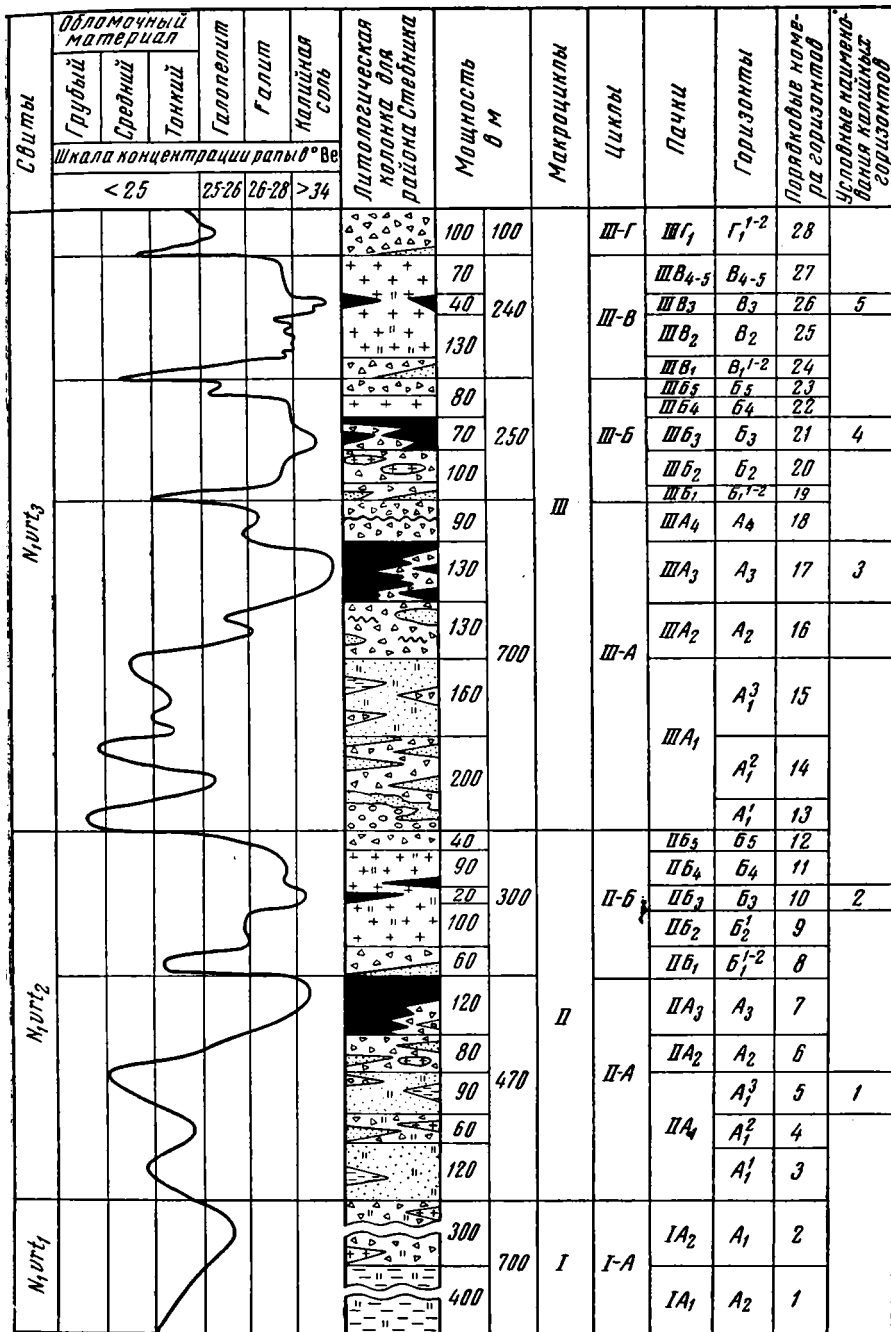 Свиты
Обломочный материал
Грубый
Средний
Тонкий
Галопелит
Галит
Калийная соль
Шкала концентрации рапы в °Ве
< 25
25-26
26-28
>34
Литологическая колонка для района Стебника
Мощность в м
Макроциклы
Циклы
Пачки
Горизонты
Порядковые номера горизонтов
Условные наименования калийных горизонтов
N₁vrt₃
100 100 III III-Г IIIГ₁ Г₁¹⁻² 28
70 240 III-В IIIВ₄₋₅ В₄₋₅ 27
40 IIIВ₃ В₃ 26 5
130 IIIВ₂ В₂ 25
IIIВ₁ В₁¹⁻² 24
80 250 III-Б IIIБ₅ Б₅ 23
IIIБ₄ Б₄ 22
70 IIIБ₃ Б₃ 21 4
100 IIIБ₂ Б₂ 20
IIIБ₁ Б₁¹⁻² 19
90 700 III-А IIIА₄ А₄ 18
130 IIIА₃ А₃ 17 3
130 IIIА₂ А₂ 16
160 IIIА₁ А₁³ 15
200 А₁² 14
А₁¹ 13
N₁vrt₂
40 300 II II-Б IIБ₅ Б₅ 12
90 IIБ₄ Б₄ 11
20 IIБ₃ Б₃ 10 2
100 IIБ₂ Б₂¹ 9
60 IIБ₁ Б₁¹⁻² 8
120 470 II-А IIА₃ А₃ 7
80 IIА₂ А₂ 6
90 IIА₁ А₁³ 5 1
60 А₁² 4
120 А₁¹ 3
N₁vrt₁
300 700 I I-А IА₂ А₁ 2
400 IА₁ А₂ 1